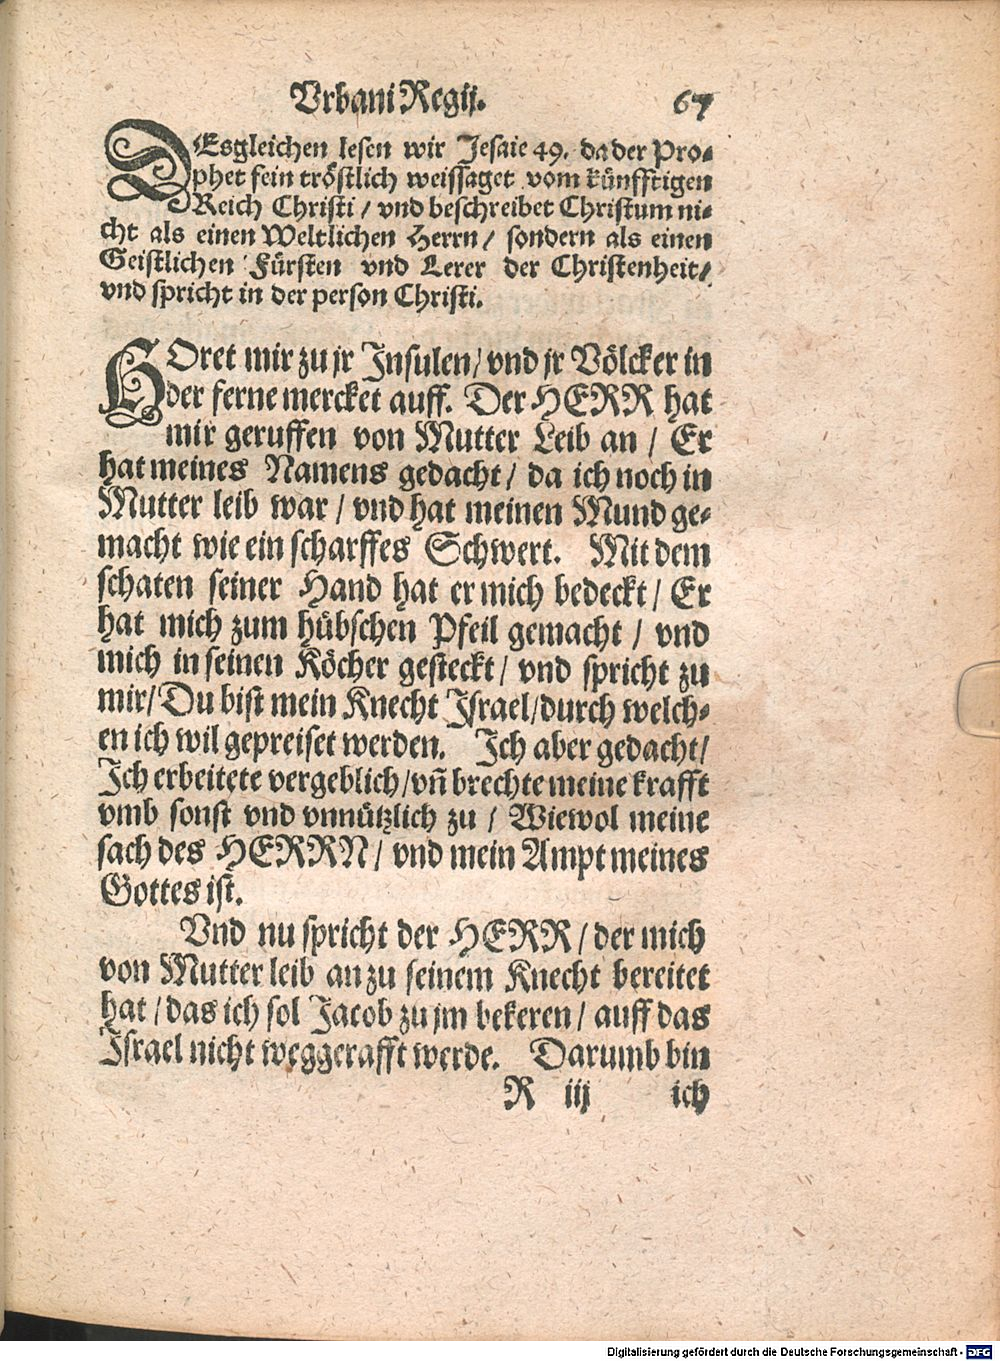 Vrbani Regij. 67
DEsgleichen lesen wir Jesaie 49. da der Pro-
phet fein tröstlich weissaget vom künfftigen
Reich Christi / vnd beschreibet Christum ni-
cht als einen Weltlichen Herrn / sondern als einen
Geistlichen Fürsten vnd Lerer der Christenheit /
vnd spricht in der person Christi.
HOret mir zu jr Insulen / vnd jr Völcker in
der ferne mercket auff. Der HERR hat
mir geruffen von Mutter Leib an / Er
hat meines Namens gedacht / da ich noch in
Mutter leib war / vnd hat meinen Mund ge-
macht wie ein scharffes Schwert. Mit dem
schaten seiner Hand hat er mich bedeckt / Er
hat mich zum hübschen Pfeil gemacht / vnd
mich in seinen Köcher gesteckt / vnd spricht zu
mir / Du bist mein Knecht Israel / durch welch-
en ich wil gepreiset werden. Ich aber gedacht /
Ich erbeitete vergeblich / vñ brechte meine krafft
vmb sonst vnd vnnützlich zu / Wiewol meine
sach des HERRN / vnd mein Ampt meines
Gottes ist.
Vnd nu spricht der HERR / der mich
von Mutter leib an zu seinem Knecht bereitet
hat / das ich sol Jacob zu jm bekeren / auff das
Israel nicht weggerafft werde. Darumb bin
R iij ich
Digitalisierung gefördert durch die Deutsche Forschungsgemeinschaft - DFG